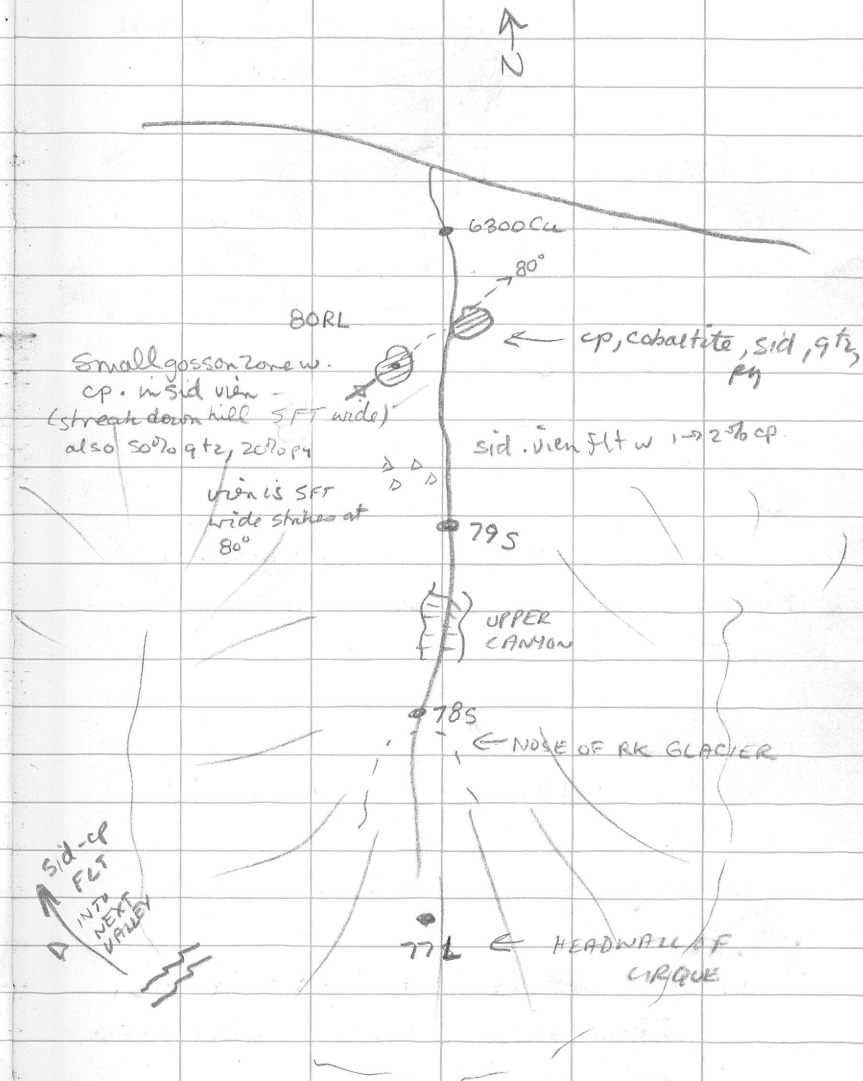 N
6300Cu
80°
80RL
← cp, cobaltite, sid, qtz,
py
Small gosson zone w.
cp. in sid vien -
(streak down hill 5FT wide)
also 50% qtz, 20% py
sid. vien flt w 1→2% cp
vien is 5FT
wide strikes at
80°
79S
UPPER
CANYON
78S
← NOSE OF RK GLACIER
sid-cp
FLT
INTO
NEXT
VALLEY
77L
← HEADWALL OF
CIRQUE